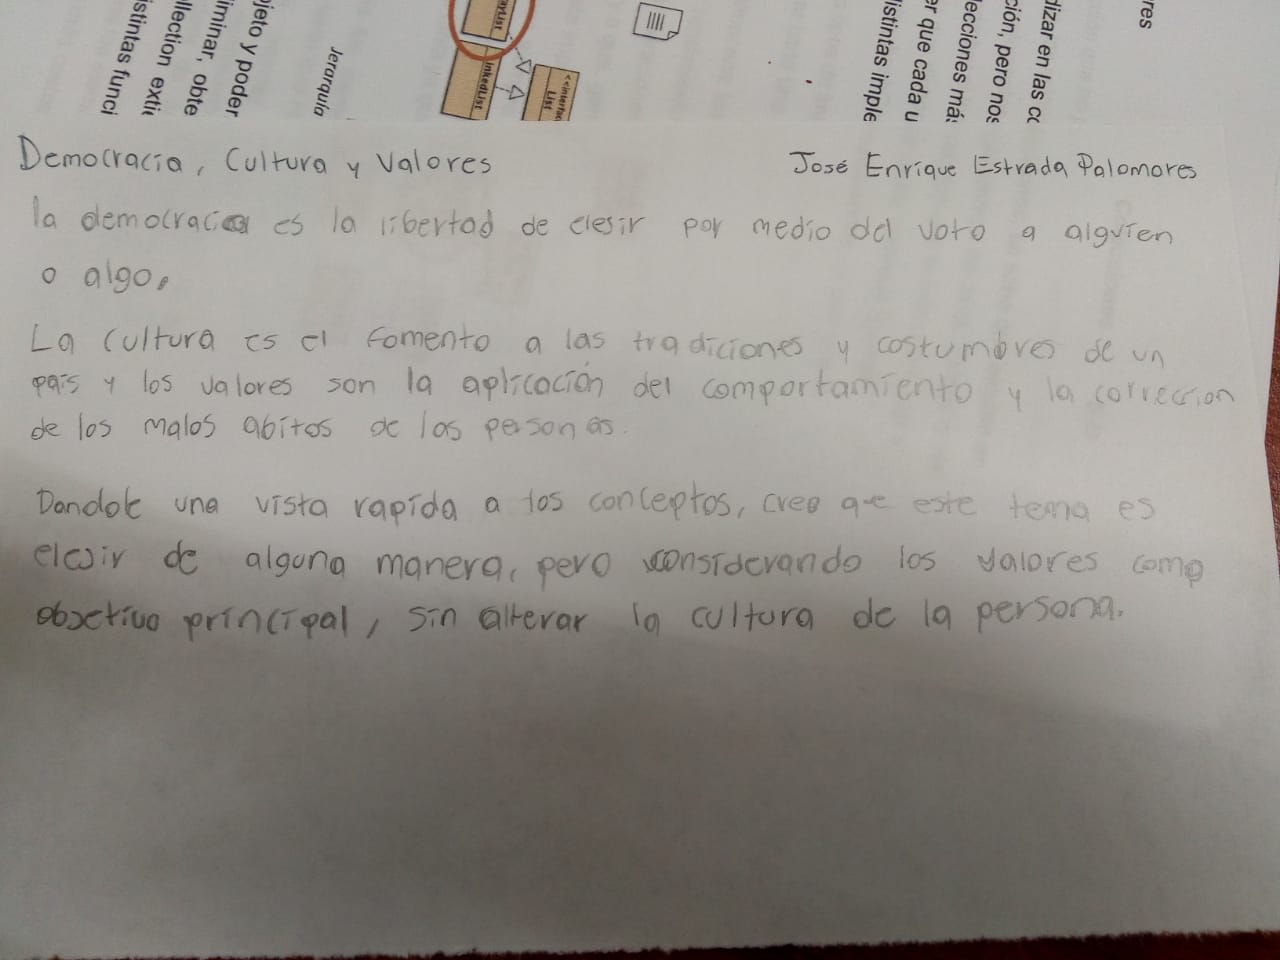 res
dizar en las co
ción, pero nos
lecciones más
er que cada u
distintas imple
<<interfac
List
ayList
inkedList
Jerarquía
bjeto y poder
iminar, obte
llection exti
istintas funci
Democracia, Cultura y Valores José Enrique Estrada Palomares
la democracia es la libertad de elesir por medio del voto a alguien
o algo.
La cultura es el fomento a las tradiciones y costumbres de un
pais y los valores son la aplicación del comportamiento y la correccion
de los malos abitos de las personas.
Dandole una vista rapida a los conceptos, creo que este tema es
elesir de alguna manera, pero considerando los valores como
objetivo principal, sin alterar la cultura de la persona.